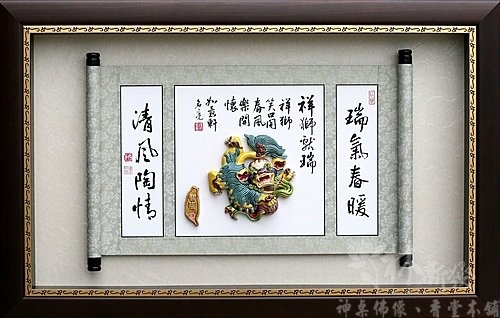 瑞氣春暖
祥獅獻瑞
祥獅
笑開
春風
樂開
懷
如意軒
清風陶情
神桌佛像、青堂本舖